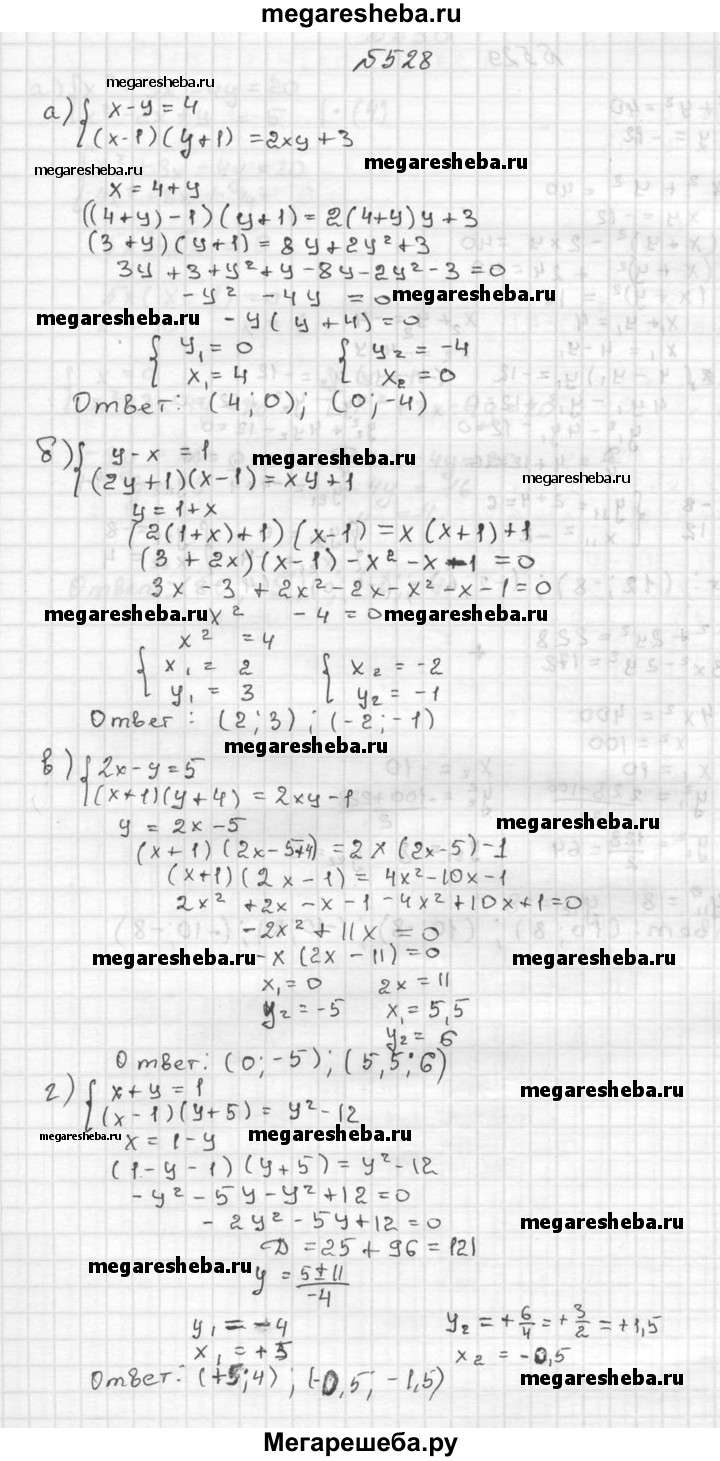 megaresheba.ru
№528
megaresheba.ru
а) { x-y = 4
(x-1)(y+1) = 2xy+3
megaresheba.ru
megaresheba.ru
x = 4+y
((4+y)-1)(y+1) = 2(4+y)y+3
(3+y)(y+1) = 8y+2y²+3
3y+3+y²+y-8y-2y²-3=0
-y² -4y = 0
megaresheba.ru
megaresheba.ru
-y(y+4)=0
{ y₁ = 0 { y₂ = -4
x₁ = 4 x₂ = 0
Ответ: (4; 0); (0; -4)
б) { y-x = 1
megaresheba.ru
(2y+1)(x-1) = xy+1
megaresheba.ru
y = 1+x
(2(1+x)+1)(x-1) = x(x+1)+1
(3+2x)(x-1) - x² - x - 1 = 0
3x - 3 + 2x² - 2x - x² - x - 1 = 0
megaresheba.ru x² - 4 = 0 megaresheba.ru
x² = 4
{ x₁ = 2 { x₂ = -2
y₁ = 3 y₂ = -1
Ответ: (2; 3); (-2; -1)
megaresheba.ru
в) { 2x-y = 5
(x+1)(y+4) = 2xy-1
megaresheba.ru
y = 2x-5
(x+1)(2x-5+4) = 2x(2x-5)-1
(x+1)(2x-1) = 4x²-10x-1
2x² + 2x - x - 1 - 4x² + 10x + 1 = 0
-2x² + 11x = 0
megaresheba.ru -x(2x-11) = 0 megaresheba.ru
x₁ = 0 2x = 11
y₂ = -5 x₁ = 5,5
y₂ = 6
Ответ: (0; -5); (5,5; 6)
г) { x+y = 1
megaresheba.ru
(x-1)(y+5) = y²-12
megaresheba.ru x = 1-y megaresheba.ru
(1-y-1)(y+5) = y²-12
-y² - 5y - y² + 12 = 0
-2y² - 5y + 12 = 0
megaresheba.ru
D = 25 + 96 = 121
megaresheba.ru
y = 5±11/-4
y₁ = -4 y₂ = +6/4 = +3/2 = +1,5
x₁ = +5 x₂ = -0,5
Ответ: (+5; 4); (-0,5; -1,5)
megaresheba.ru
Мегарешеба.ру